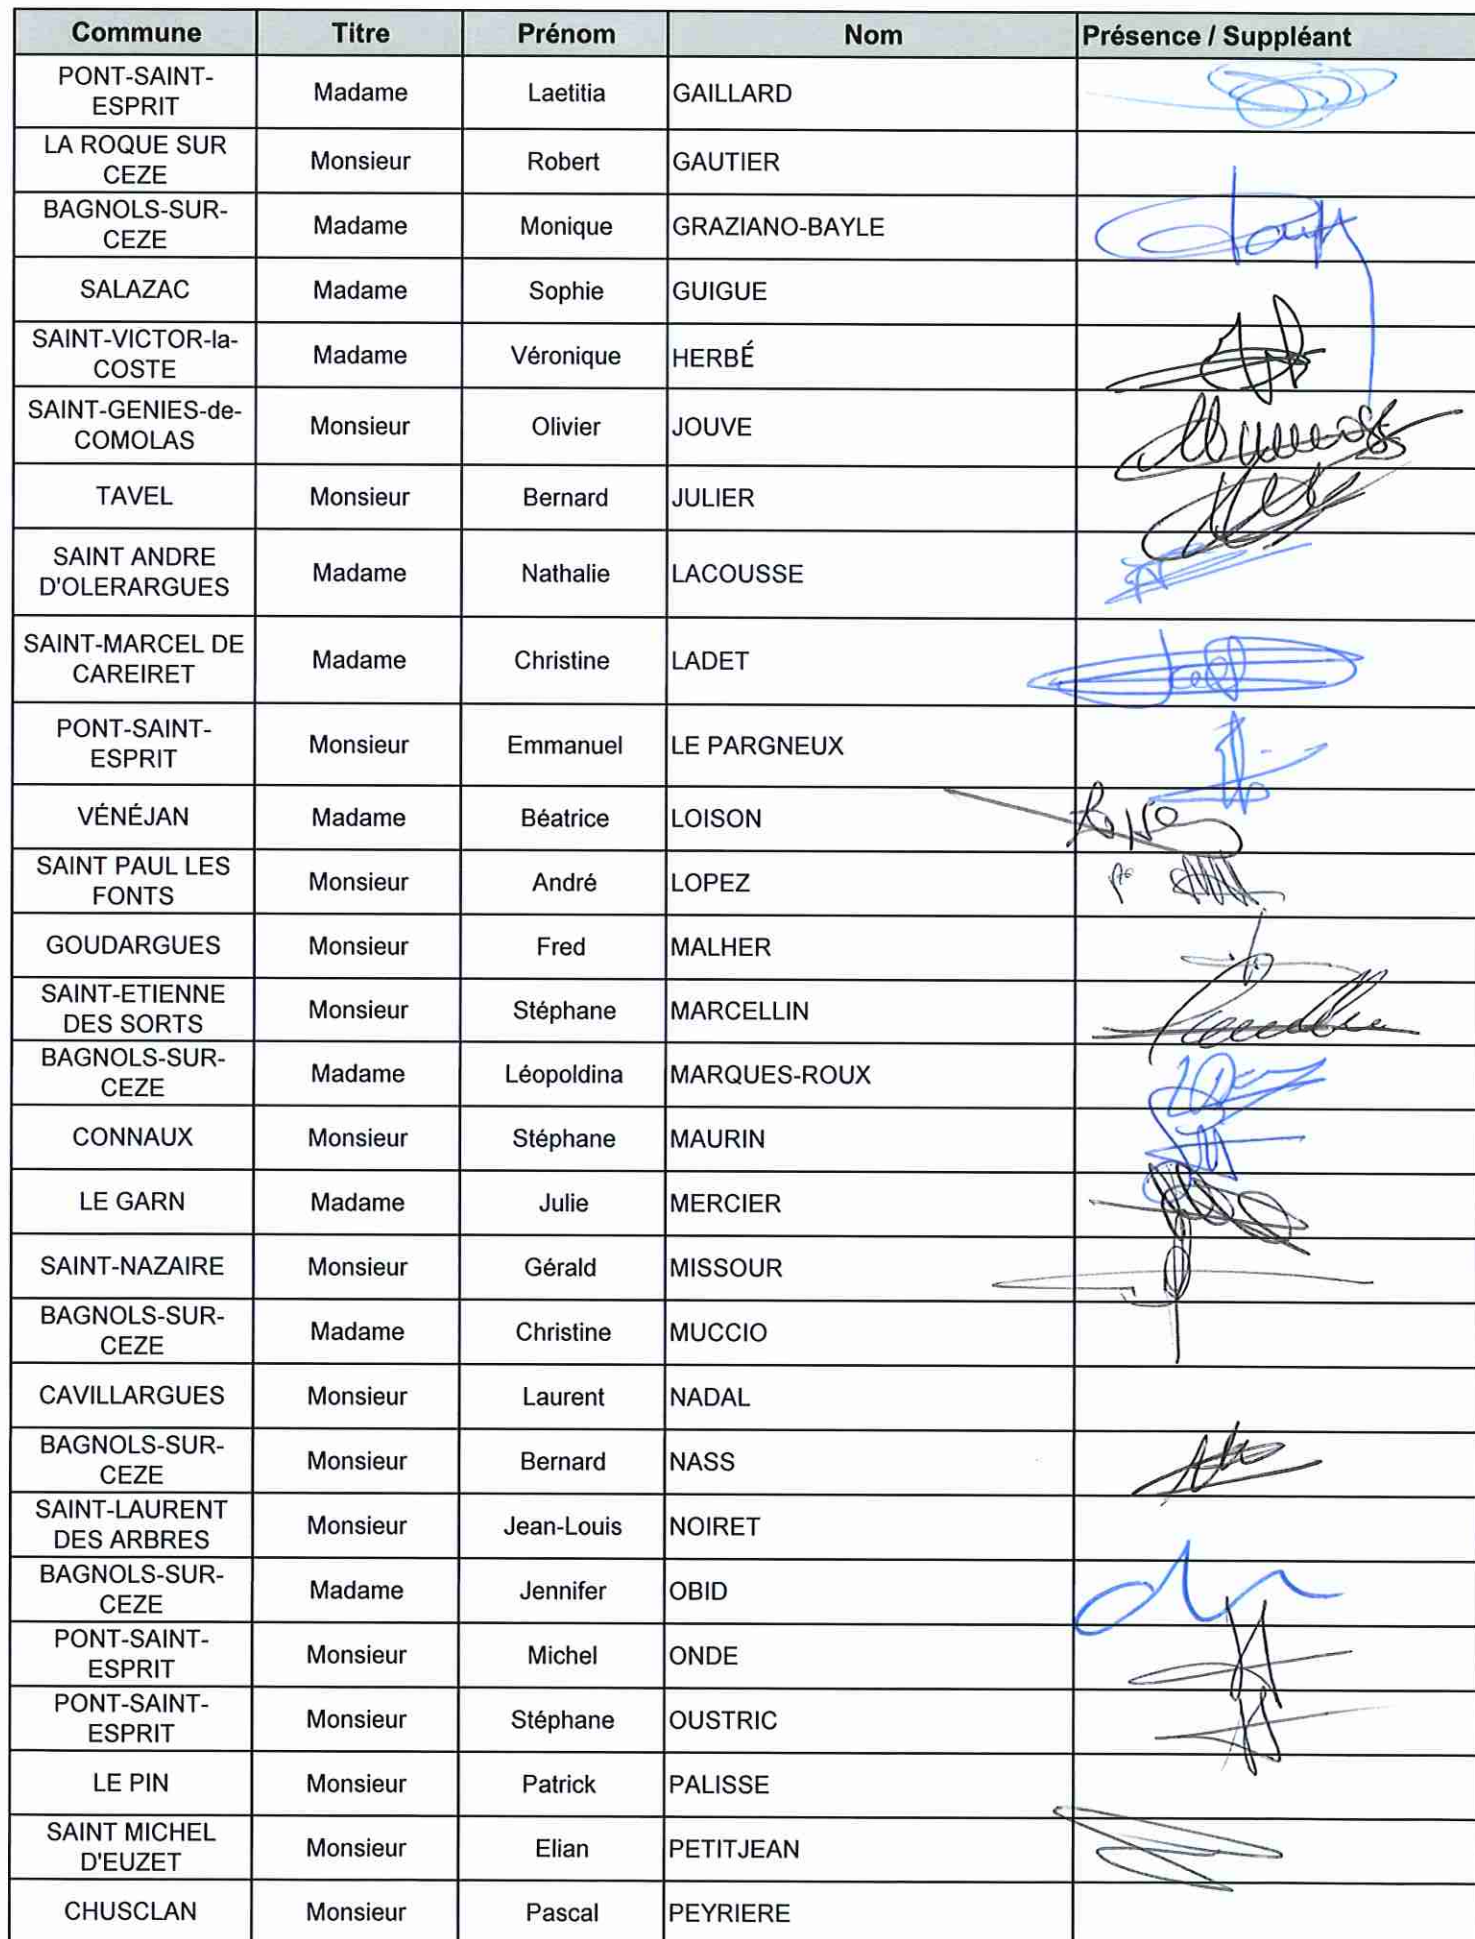 Commune Titre Prénom Nom Présence / Suppléant
PONT-SAINT-
ESPRIT Madame Laetitia GAILLARD
LA ROQUE SUR
CEZE Monsieur Robert GAUTIER
BAGNOLS-SUR-
CEZE Madame Monique GRAZIANO-BAYLE
SALAZAC Madame Sophie GUIGUE
SAINT-VICTOR-la-
COSTE Madame Véronique HERBÉ
SAINT-GENIES-de-
COMOLAS Monsieur Olivier JOUVE
TAVEL Monsieur Bernard JULIER
SAINT ANDRE
D'OLERARGUES Madame Nathalie LACOUSSE
SAINT-MARCEL DE
CAREIRET Madame Christine LADET
PONT-SAINT-
ESPRIT Monsieur Emmanuel LE PARGNEUX
VÉNÉJAN Madame Béatrice LOISON
SAINT PAUL LES
FONTS Monsieur André LOPEZ
GOUDARGUES Monsieur Fred MALHER
SAINT-ETIENNE
DES SORTS Monsieur Stéphane MARCELLIN
BAGNOLS-SUR-
CEZE Madame Léopoldina MARQUES-ROUX
CONNAUX Monsieur Stéphane MAURIN
LE GARN Madame Julie MERCIER
SAINT-NAZAIRE Monsieur Gérald MISSOUR
BAGNOLS-SUR-
CEZE Madame Christine MUCCIO
CAVILLARGUES Monsieur Laurent NADAL
BAGNOLS-SUR-
CEZE Monsieur Bernard NASS
SAINT-LAURENT
DES ARBRES Monsieur Jean-Louis NOIRET
BAGNOLS-SUR-
CEZE Madame Jennifer OBID
PONT-SAINT-
ESPRIT Monsieur Michel ONDE
PONT-SAINT-
ESPRIT Monsieur Stéphane OUSTRIC
LE PIN Monsieur Patrick PALISSE
SAINT MICHEL
D'EUZET Monsieur Elian PETITJEAN
CHUSCLAN Monsieur Pascal PEYRIERE